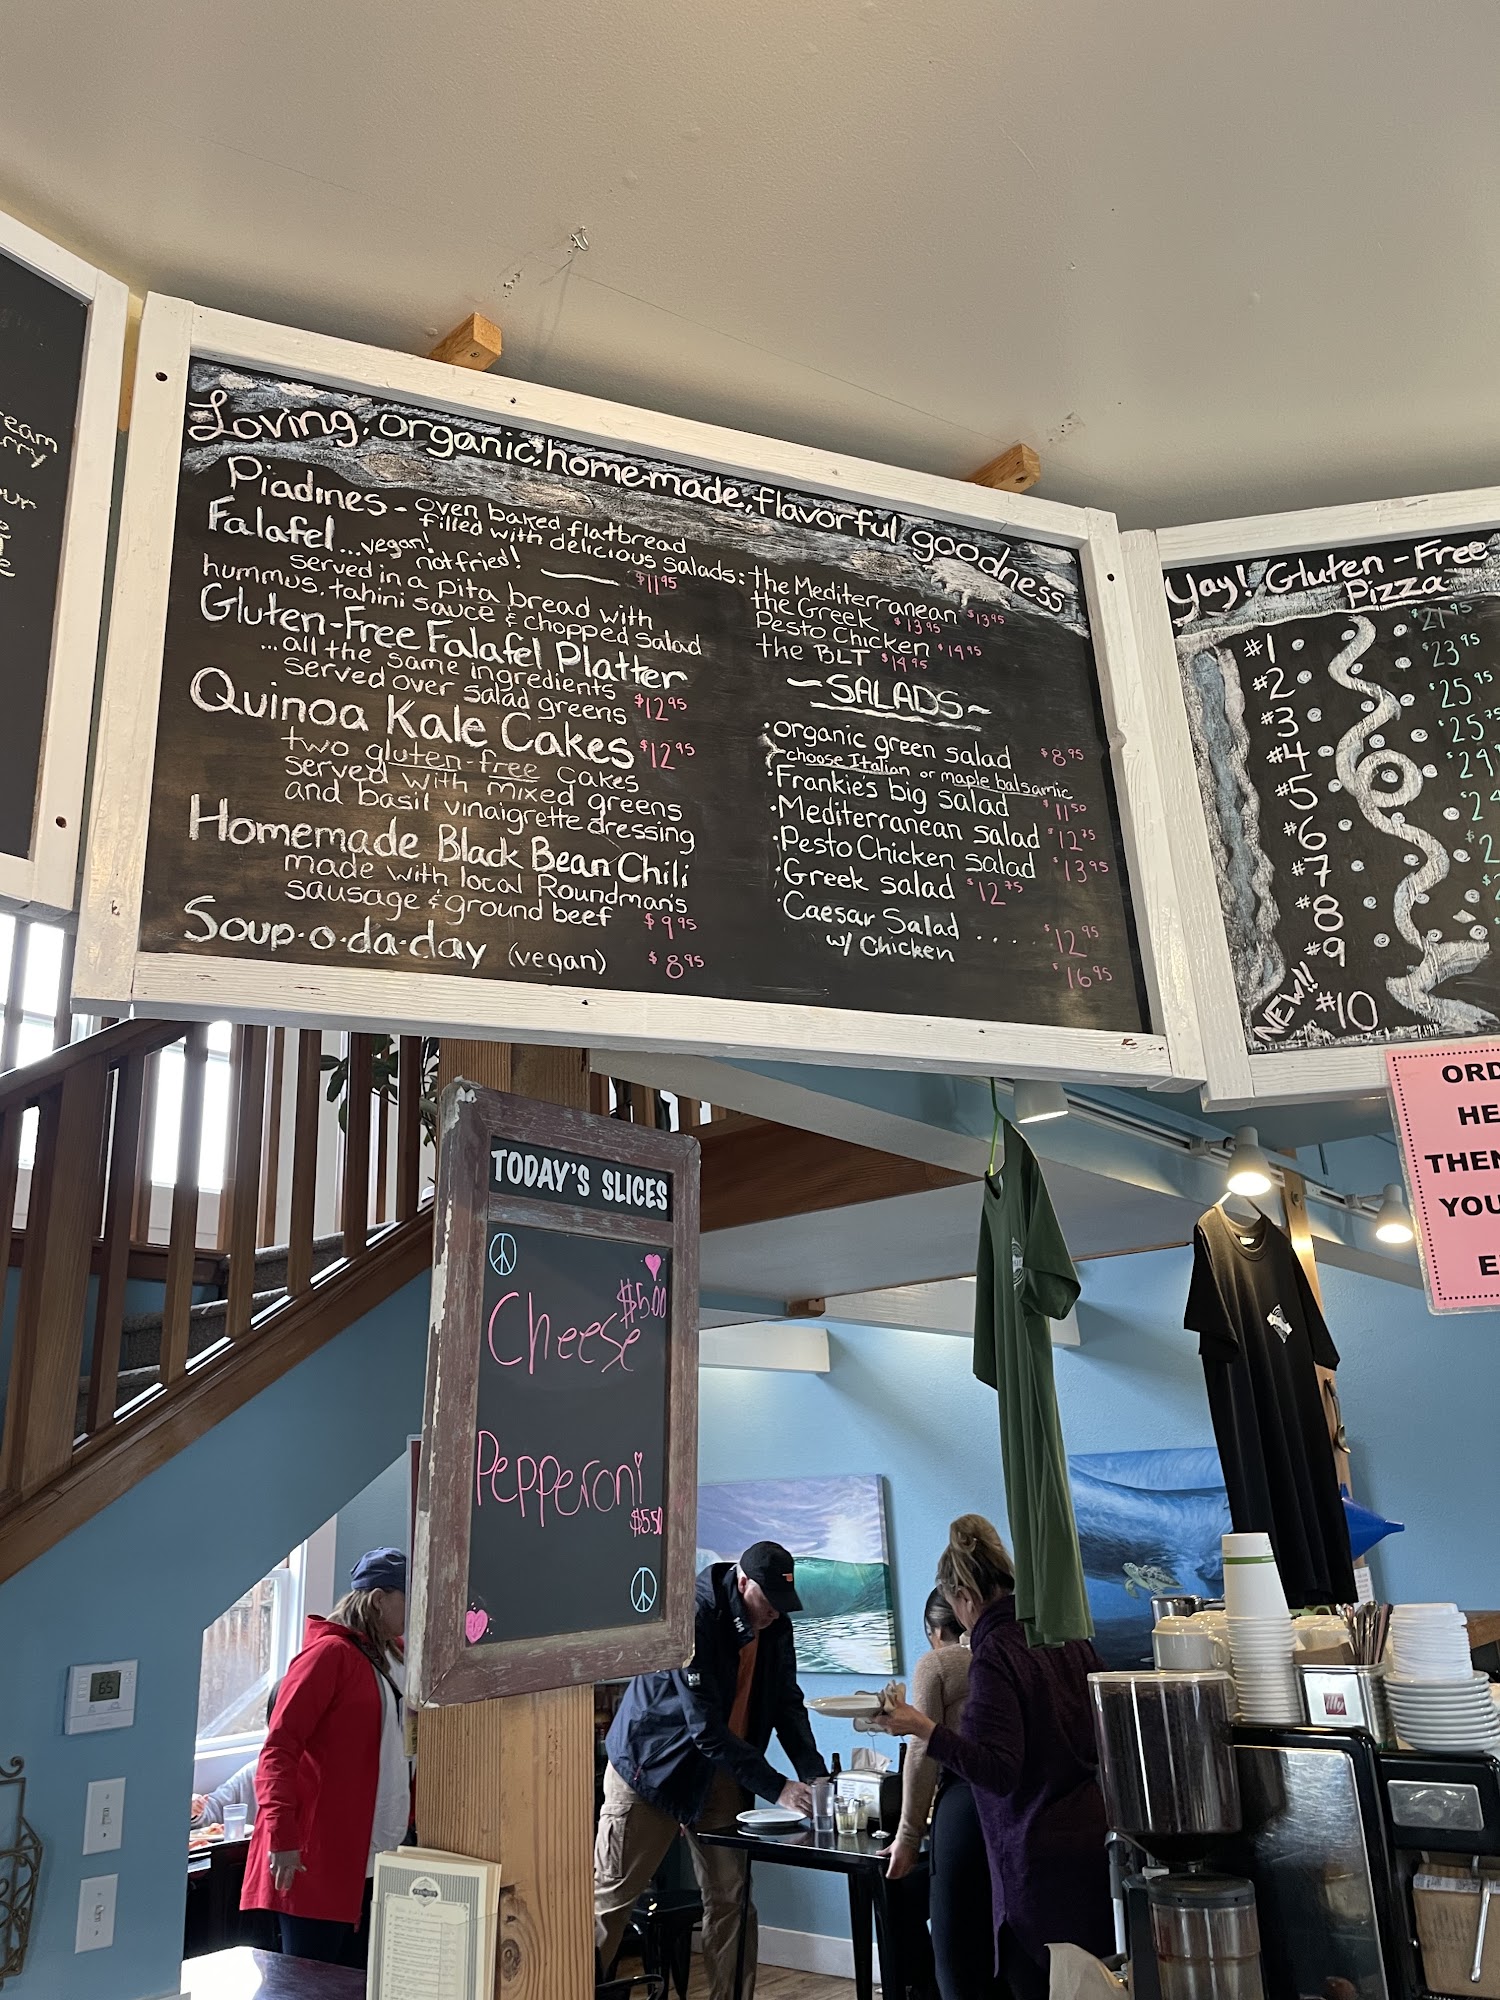 ream
rry
our
Loving, organic, homemade, flavorful goodness
Piadines - oven baked flatbread
filled with delicious salads:
the Mediterranean $13.95
the Greek $13.95
Pesto Chicken $14.95
the BLT $14.95
Falafel...vegan! not fried! $11.95
served in a pita bread with
hummus, tahini sauce & chopped salad
Gluten-Free Falafel Platter
...all the same ingredients
served over salad greens $12.95
Quinoa Kale Cakes $12.95
two gluten-free cakes
served with mixed greens
and basil vinaigrette dressing
Homemade Black Bean Chili
made with local Roundman's
sausage & ground beef $9.95
Soup·o·da·day (vegan) $8.95
~SALADS~
·organic green salad $8.95
choose Italian or maple balsamic
·Frankie's big salad $11.50
·Mediterranean salad $12.75
·Pesto Chicken salad $13.95
·Greek salad $12.75
·Caesar Salad ..... $12.95
w/ Chicken $16.95
Yay! Gluten-Free
Pizza
#1 $21.95
#2 $23.95
#3 $25.95
#4 $25.75
#5
#6
#7
#8
#9
NEW!! #10
ORD
HE
THEN
YOU
E
TODAY'S SLICES
Cheese $5.00
Pepperoni $5.50
65
illy